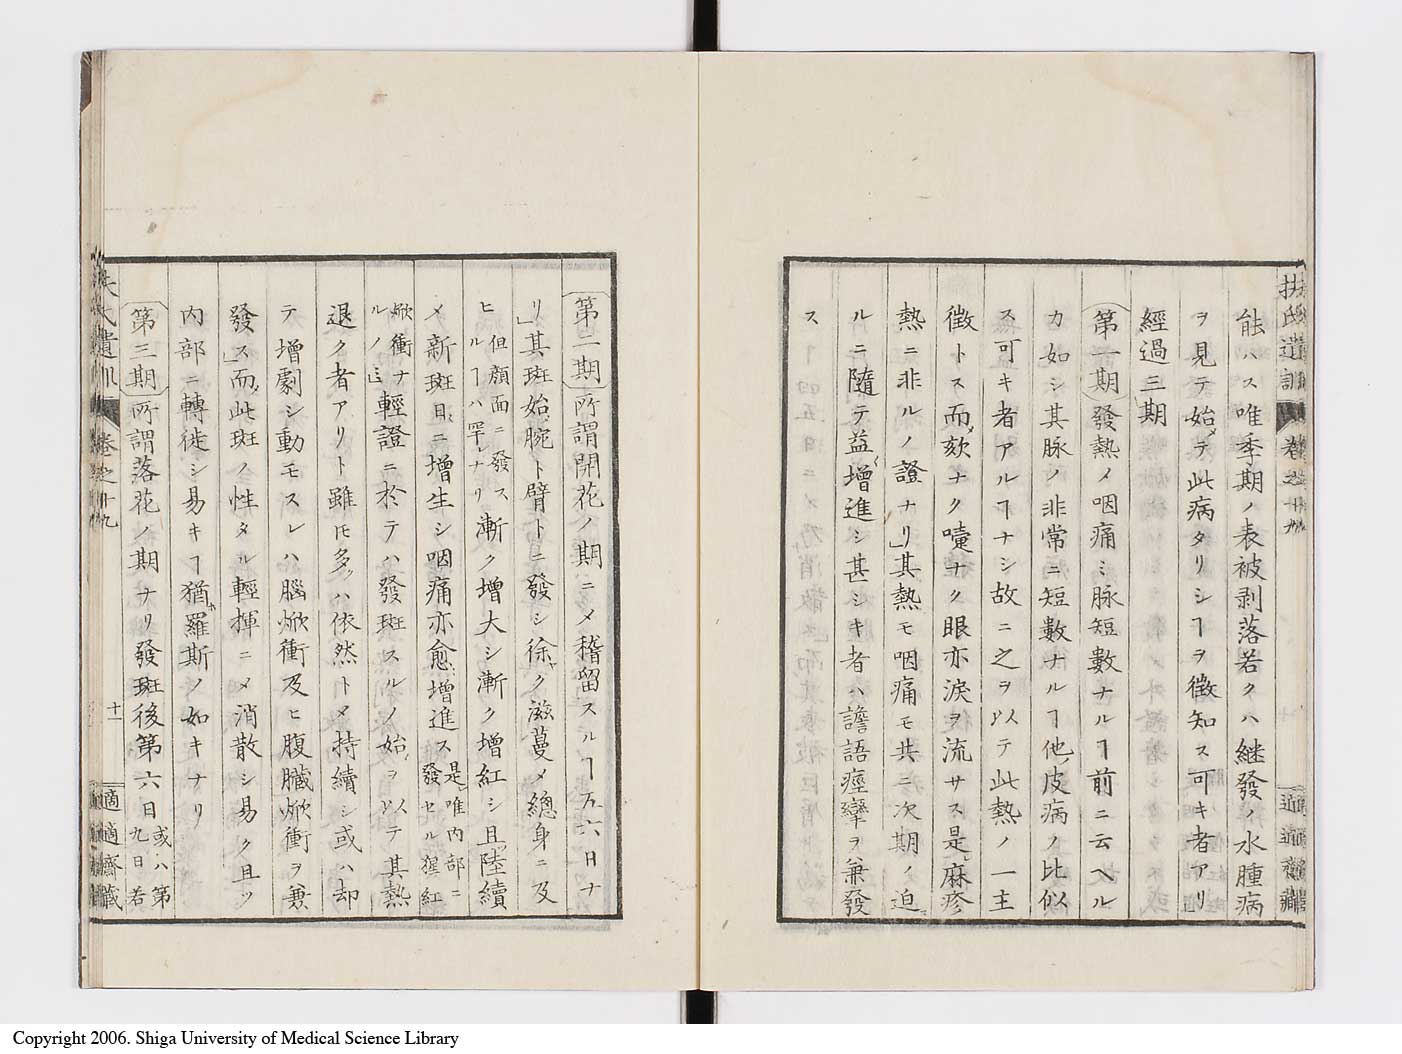 扶氏遺訓 卷之十九 適適齋藏
能ハス唯季期ノ表被剥落若クハ継發ノ水腫病
ヲ見テ始メテ此病タリシヿヲ徴知ス可キ者アリ」
經過三期
第一期發熱メ咽痛ミ脉短數ナルヿ前ニ云ヘル
カ如シ其脉ノ非常ニ短數ナルヿ他ノ皮病ノ比似
ス可キ者アルヿナシ故ニ之ヲ以テ此熱ノ一主
徴トス而メ欬ナク嚏ナク眼亦涙ヲ流サス是レ麻疹
熱ニ非ルノ證ナリ」其熱モ咽痛モ共ニ次期ノ迫
ルニ隨テ益々增進シ甚シキ者ハ譫語痙攣ヲ兼發
ス
第二期所謂開花ノ期ニメ稽留スルヿ五六日ナ
リ」其斑始メ腕ト臂トニ發シ徐ク滋蔓メ總身ニ及
ヒ但顔面ニ發スルヿハ罕レナリ漸ク增大シ漸ク增紅シ且ツ陸續
メ新斑日ニ增生シ咽痛亦愈增進ス是レ唯内部ニ發セル猩紅
焮衝ナルノミ輕證ニ於テハ發斑スルノ始メヲ以テ其熱
退ク者アリト雖モ多クハ依然トメ持續シ或ハ却
テ增劇シ動モスレハ腦焮衝及ヒ腹臓焮衝ヲ兼
發ス」而メ此斑ノ性タル輕揮ニメ消散シ易ク且ツ
内部ニ轉徙シ易キヿ猶ホ羅斯ノ如キナリ
第三期所謂落花ノ期ナリ發斑後第六日或ハ第九日若
卷之十九 十一 適適齋藏
Copyright 2006. Shiga University of Medical Science Library